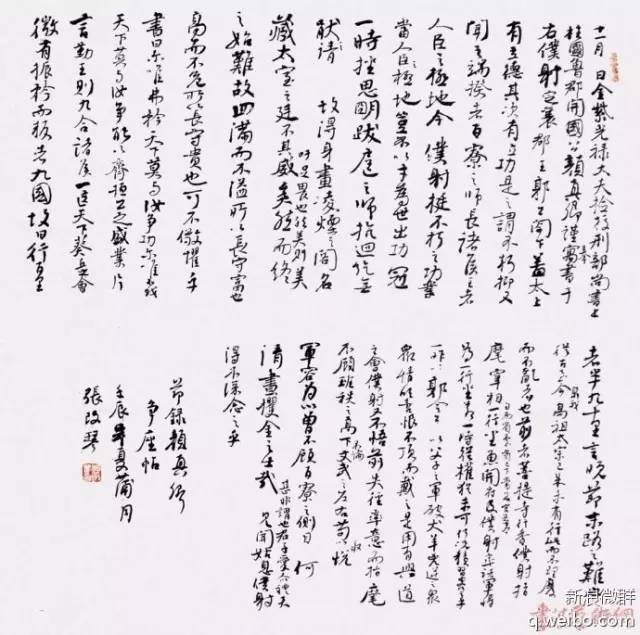 十一月 日金紫光禄大夫检校刑部尚書上
柱國魯郡開國公顏真卿謹奉寓書于
右僕射定襄郡王郭公閣下蓋太上
有立德其次有立功是之謂不朽抑又
聞之端揆者百寮之師長諸侯王者
人臣之極地今僕射挺不朽之功業
當人臣極地豈不以才為世出功冠
一時挫思明跋扈之師抗迴紇無
厭之請 故得身畫凌煙之閣名
藏太室之廷不其盛矣然而終
吁足畏也然美則美
之始難故曰滿而不溢所以長守富也
高而不危所以長守貴也可不儆懼乎
書曰爾唯弗矜天下莫與汝爭功爾唯弗伐
天下莫與汝爭能以齊桓公之盛業片
言勤王則九合諸侯一匡天下葵丘之會
微有振矜而叛者九國故曰行百里
者半九十里言晚節末路之難也
從古至今暨我高祖太宗已来未有行此而不理廢
而不亂者也前者菩提寺行香僕射指
麾宰相 一行坐魚開府及僕射率諸軍將
為一行坐若一時從權亦未可何況積習更行之乎
一昨以郭令公父子之軍破犬羊凶逆之眾
眾情欣喜恨不頂而戴之是用有興道
之會僕射又不悟前失徑率意而指麾
不顧班秩之高下不論文武之左右苟以取悦
軍容為心曾不顧百寮之側目 何
清晝攫金之士哉
甚非謂也君子愛人以禮不
見聞姑息僕射
得不深念之乎
節錄顏真卿
爭座帖
壬辰年夏蒲月
張改琴
新浪微群
q.weibo.com